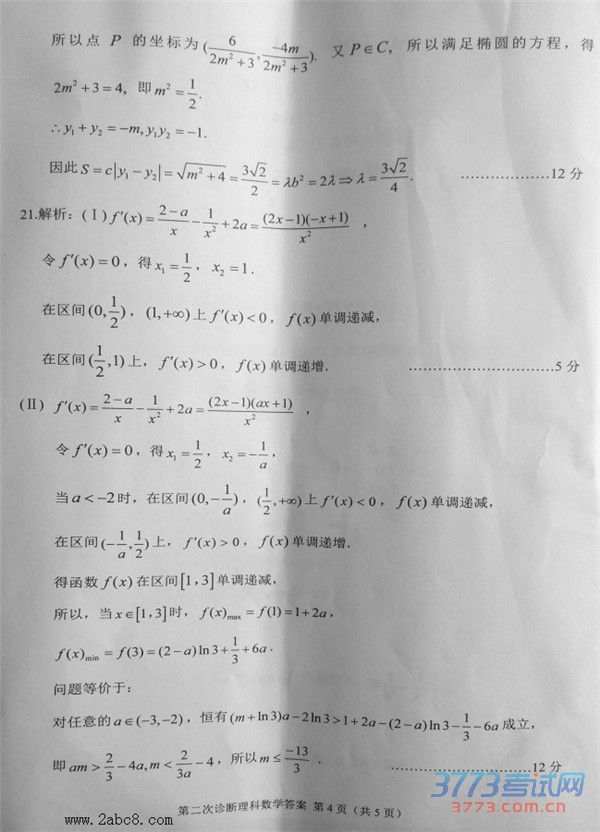 所以点 P 的坐标为 (6/(2m²+3), -4m/(2m²+3)). 又 P∈C, 所以满足椭圆的方程，得
2m²+3=4, 即 m²=1/2.
∴y₁+y₂=-m, y₁y₂=-1.
因此 S=c|y₁-y₂|=√(m²+4)=3√2/2=λb²=2λ⇒λ=3√2/4. ………………12 分
21.解析：(Ⅰ) f′(x)=(2-a)/x-1/x²+2a=(2x-1)(-x+1)/x²，
令 f′(x)=0，得 x₁=1/2，x₂=1.
在区间(0,1/2)，(1,+∞)上 f′(x)<0，f(x)单调递减，
在区间(1/2,1)上，f′(x)>0，f(x)单调递增. …………………………5 分
(Ⅱ) f′(x)=(2-a)/x-1/x²+2a=(2x-1)(ax+1)/x²，
令 f′(x)=0，得 x₁=1/2，x₂=-1/a，
当 a<-2 时，在区间(0,-1/a)，(1/2,+∞)上 f′(x)<0，f(x)单调递减，
在区间(-1/a,1/2)上，f′(x)>0，f(x)单调递增.
得函数 f(x)在区间[1,3]单调递减，
所以，当 x∈[1,3]时，f(x)max=f(1)=1+2a，
f(x)min=f(3)=(2-a)ln3+1/3+6a.
问题等价于：
对任意的 a∈(-3,-2)，恒有(m+ln3)a-2ln3>1+2a-(2-a)ln3-1/3-6a 成立，
即 am>2/3-4a, m<2/(3a)-4，所以 m≤-13/3. …………………………12 分
第二次诊断理科数学答案 第 4 页（共 5 页）
www.2abc8.com
3773考试网
3773.com.cn